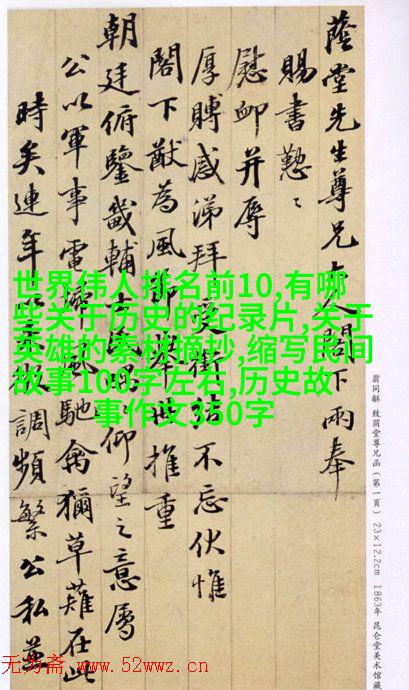 蔭堂先生尊兄大人閣下兩奉
賜書懃〻
慰卹并辱
厚賻感涕拜受銜結不忘伏惟
閣下猷為風節舉世推重
朝廷俯鑒畿輔士民仰望之意屬
公以軍事電埽風馳禽獮草薙在此
時矣連年以來調頻繁公私並
世界伟人排名前10,有哪
些关于历史的纪录片,关于
英雄的素材摘抄,缩写民间
故事100字左右,历史故
事作文350字
翁同龢 致荫堂尊兄函（第一頁） 23×12.2cm 1863年 昆仑堂美术馆藏
无为斋 www.52wwz.cn